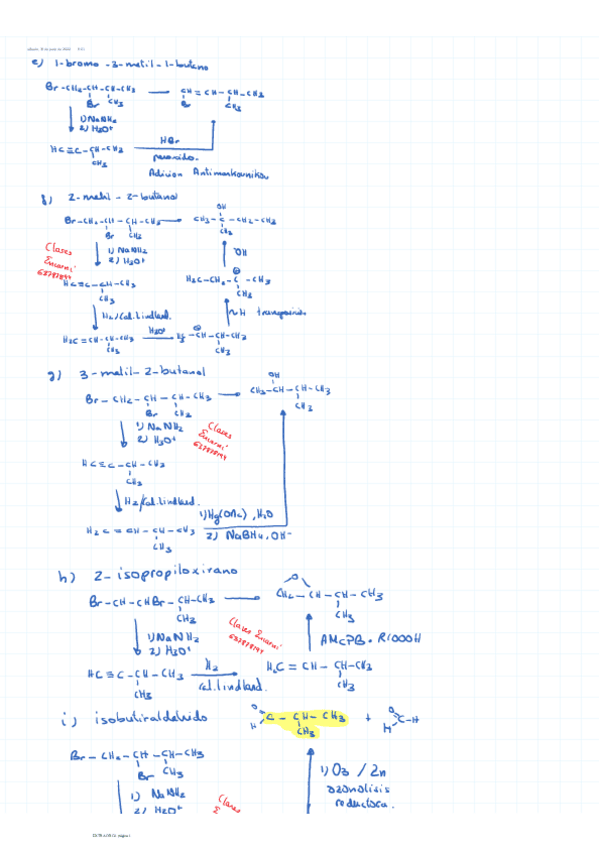 e) 1-bromo-3-metil-1-butano
Br-CH₂-CH-CH-CH₃ → CH=CH-CH-CH₃
Br CH₃ Br CH₃
1) NaNH₂
2) H₃O⁺
HBr
HC≡C-CH-CH₃
CH₃
peroxido.
Adicion Antimarkovnikov
f) 2-metil-2-butanol
OH
Br-CH₂-CH-CH-CH₃ → CH₃-C-CH₂-CH₃
Br CH₃ CH₃
Clases
Encarni
1) NaNH₂
2) H₃O⁺
OH
HC≡C-CH-CH₃
CH₃
H₃C-CH₂-C-CH₃
⊕
CH₃
H₂/Cat. Lindlard.
~H
H₂C=CH-CH-CH₃
CH₃
H₃O⁺
H₃C-CH-CH-CH₃
⊕
CH₃
g) 3-metil-2-butanol
OH
Br-CH₂-CH-CH-CH₃ → CH₃-CH-CH-CH₃
Br CH₃ CH₃
1) NaNH₂
2) H₃O⁺
Clases
Encarni
HC≡C-CH-CH₃
CH₃
H₂/Cat. Lindlard.
1) Hg(OAc), H₂O
H₂C=CH-CH-CH₃
CH₃
2) NaBH₄, OH⁻
h) 2-isopropiloxirano
O
Br-CH-CHBr-CH-CH₃ → CH₂-CH-CH-CH₃
CH₃ CH₃
1) NaNH₂
2) H₃O⁺
Clases Encarni
AMCPB. R'COOOH
HC≡C-CH-CH₃
CH₃
H₂
Cat. Lindlard.
H₂C=CH-CH-CH₃
CH₃
i) isobutiraldehido
O
H C-CH-CH₃
CH₃
+
O
H C-H
Br-CH₂-CH-CH-CH₃
Br CH₃
1) NaNH₂
2) H₃O⁺
1) O₃/Zn
ozonolisis
reductora.
Clases